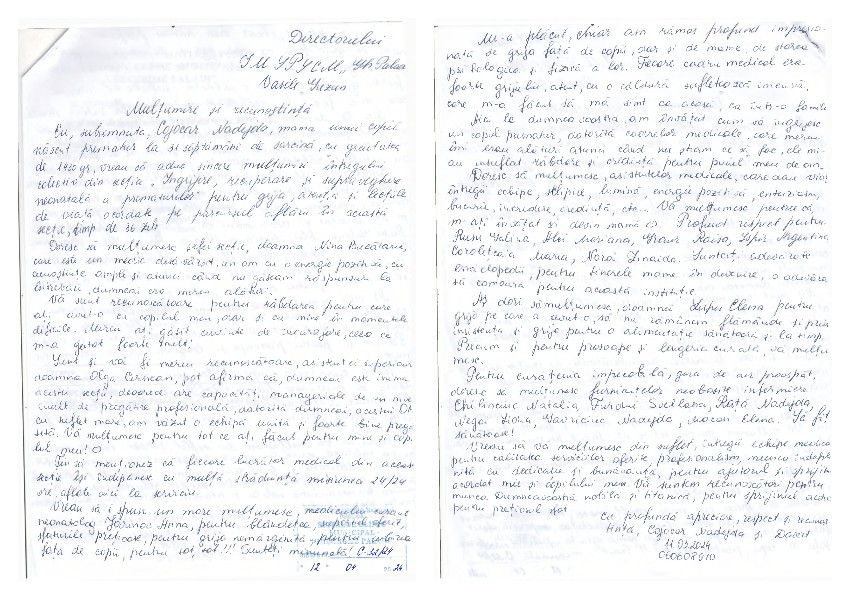 Directorului
IM SPUCM „Gh. Paladi
Vasile Guzun
Mulțumire și recunoștință
Eu, subsemnata, Cojocar Nadejda, mama unui copil
născut prematur la 31 săptămâni de sarcină, cu greutatea
de gr, vreau să aduc sincere mulțumiri întregului
colectiv din secția „Îngrijire, recuperare și supraveghere
neonatală a prematurilor" pentru grija, atenția și lecțiile
de viață acordate pe parcursul aflării în această
secție, timp de 36 zile
Doresc să mulțumesc șefei secție, doamna Nina
care este un medic desăvârșit, un om cu o energie pozitivă, cu
cunoștințe ample și atunci când nu găseam răspunsuri la
întrebări, dumneaei era mereu alături.
Vă sunt recunoscătoare pentru răbdarea pentru care
ați avut-o cu copilul meu, dar și cu mine în momentele
dificile. Mereu ați găsit cuvinte de încurajare, ceea ce
m-a ajutat foarte mult.
Sunt și voi fi mereu recunoscătoare, asistentei superioare
doamna Olga, pot afirma că, dumneaei este inima
acestei secții, deoarece are capacități manageriale de un nivel
înalt de pregătire profesională, datorită dumneaei, acestui Om
cu suflet mare, am văzut o echipă unită și foarte bine pregă-
tită. Vă mulțumesc pentru tot ce ați făcut pentru mine și copi-
lul meu!
Țin să menționez că fiecare lucrător medical din această
secție își îndeplinesc cu multă străduință misiunea 24/24
ore, aflate aici la serviciu.
Vreau să-i spun un mare mulțumesc, medicului curant
neonatolog Anna, pentru blândețea, suportul oferit,
sfaturile prețioase, pentru grija nemărginită, pentru iubirea
față de copii, pentru tot, tot!!! Sunteți minunată!
12 04 24
Mi-a plăcut, chiar am rămas profund impresio-
nată de grija față de copii, dar și de mame, de starea
psihologică și fizică a lor. Fiecare cadru medical era
foarte grijuliu, atent, cu o căldură sufletească imensă,
care m-a făcut să mă simt ca acasă, ca într-o familie
Aici la dumneavoastră, am învățat cum să îngrijesc
un copil prematur, datorită cadrelor medicale, care mereu
îmi erau alături atunci când nu știam ce să fac, ele mi-
au insuflat răbdare și credință pentru puiul meu de om.
Doresc să mulțumesc, asistentelor medicale, care dau viață
întregii echipe, sclipire, lumină, energie pozitivă, entuziasm,
bucurie, încredere, credință, etc... Vă mulțumesc pentru că,
m-ați învățat să devin mamă. Profund respect pentru:
Rusu Galina, Mariana, Raisa, Argentina,
Maria, Zinaida. Sunteți adevărate
enciclopedii, pentru tinerele mame în devenire, o adevăra-
tă comoară pentru această instituție.
Aș dori să mulțumesc, doamnei Elena pentru
grija pe care a avut-o, să nu rămânem flămânde și prin
insistența și grija pentru o alimentație sănătoasă și la timp.
Precum și pentru prosoape și lengeria curată, vă mulțu-
mesc.
Pentru curățenia impecabilă, gura de aer proaspăt,
doresc să mulțumesc furnicuțelor neobosite infermiere
Natalia, Svetlana, Rață Nadejda,
Negai Lidia, Nadejda, Elena. Să fiți
sănătoase!
Vreau să vă mulțumesc din suflet, întregii echipe medica
pentru calitatea serviciilor oferite, profesionalism, munca îndepli-
nită cu dedicație și bunăvoință, pentru ajutorul și sprijinul
acordat mie și copilului meu. Vă suntem recunoscători pentru
munca Dumneavoastră nobilă și titanică, pentru sprijinul acordat
pentru prețiosul sfat.
Cu profundă apreciere, respect și recunoș-
tință, Cojocar Nadejda și David
11.03.2024